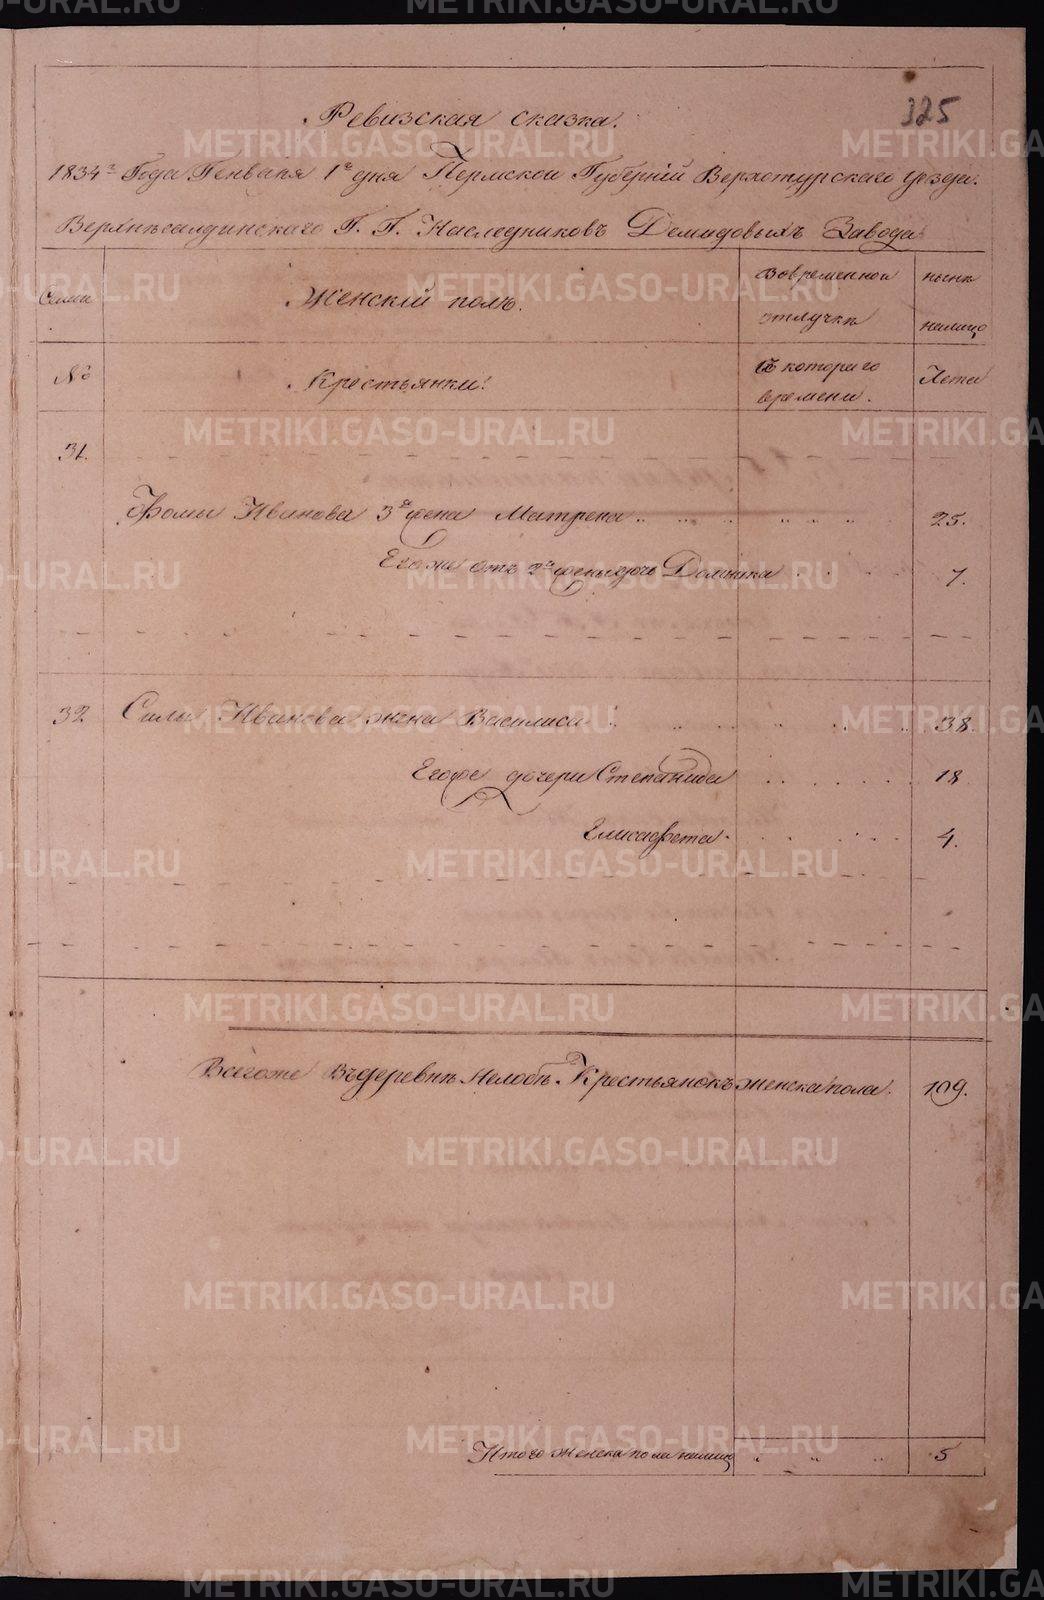 325
Ревизская сказка.
1834го Года Генваря 1го дня Пермской Губерніи Верхотурскаго уезда.
Верхнѣсалдинскаго Г. Г. Наследниковъ Демидовыхъ Завода
Семьи
Женскій полъ.
Вовременной отлучкѣ
нынѣ налицо
№
Крестьянки:
Съ котораго времени.
Лета
31.
Фомы Иванова 3я жена Матрена 25.
Его же отъ 2й жены дочь 7.
32 Силы Иванова жена Василиса 38.
Егоже дочери Степанида 18
Елисавета 4.
Всегоже Въ деревнѣ Нелобѣ Крестьянокъ женска пола. 109.
Итого женска пола налицо 5
METRIKI.GASO-URAL.RU